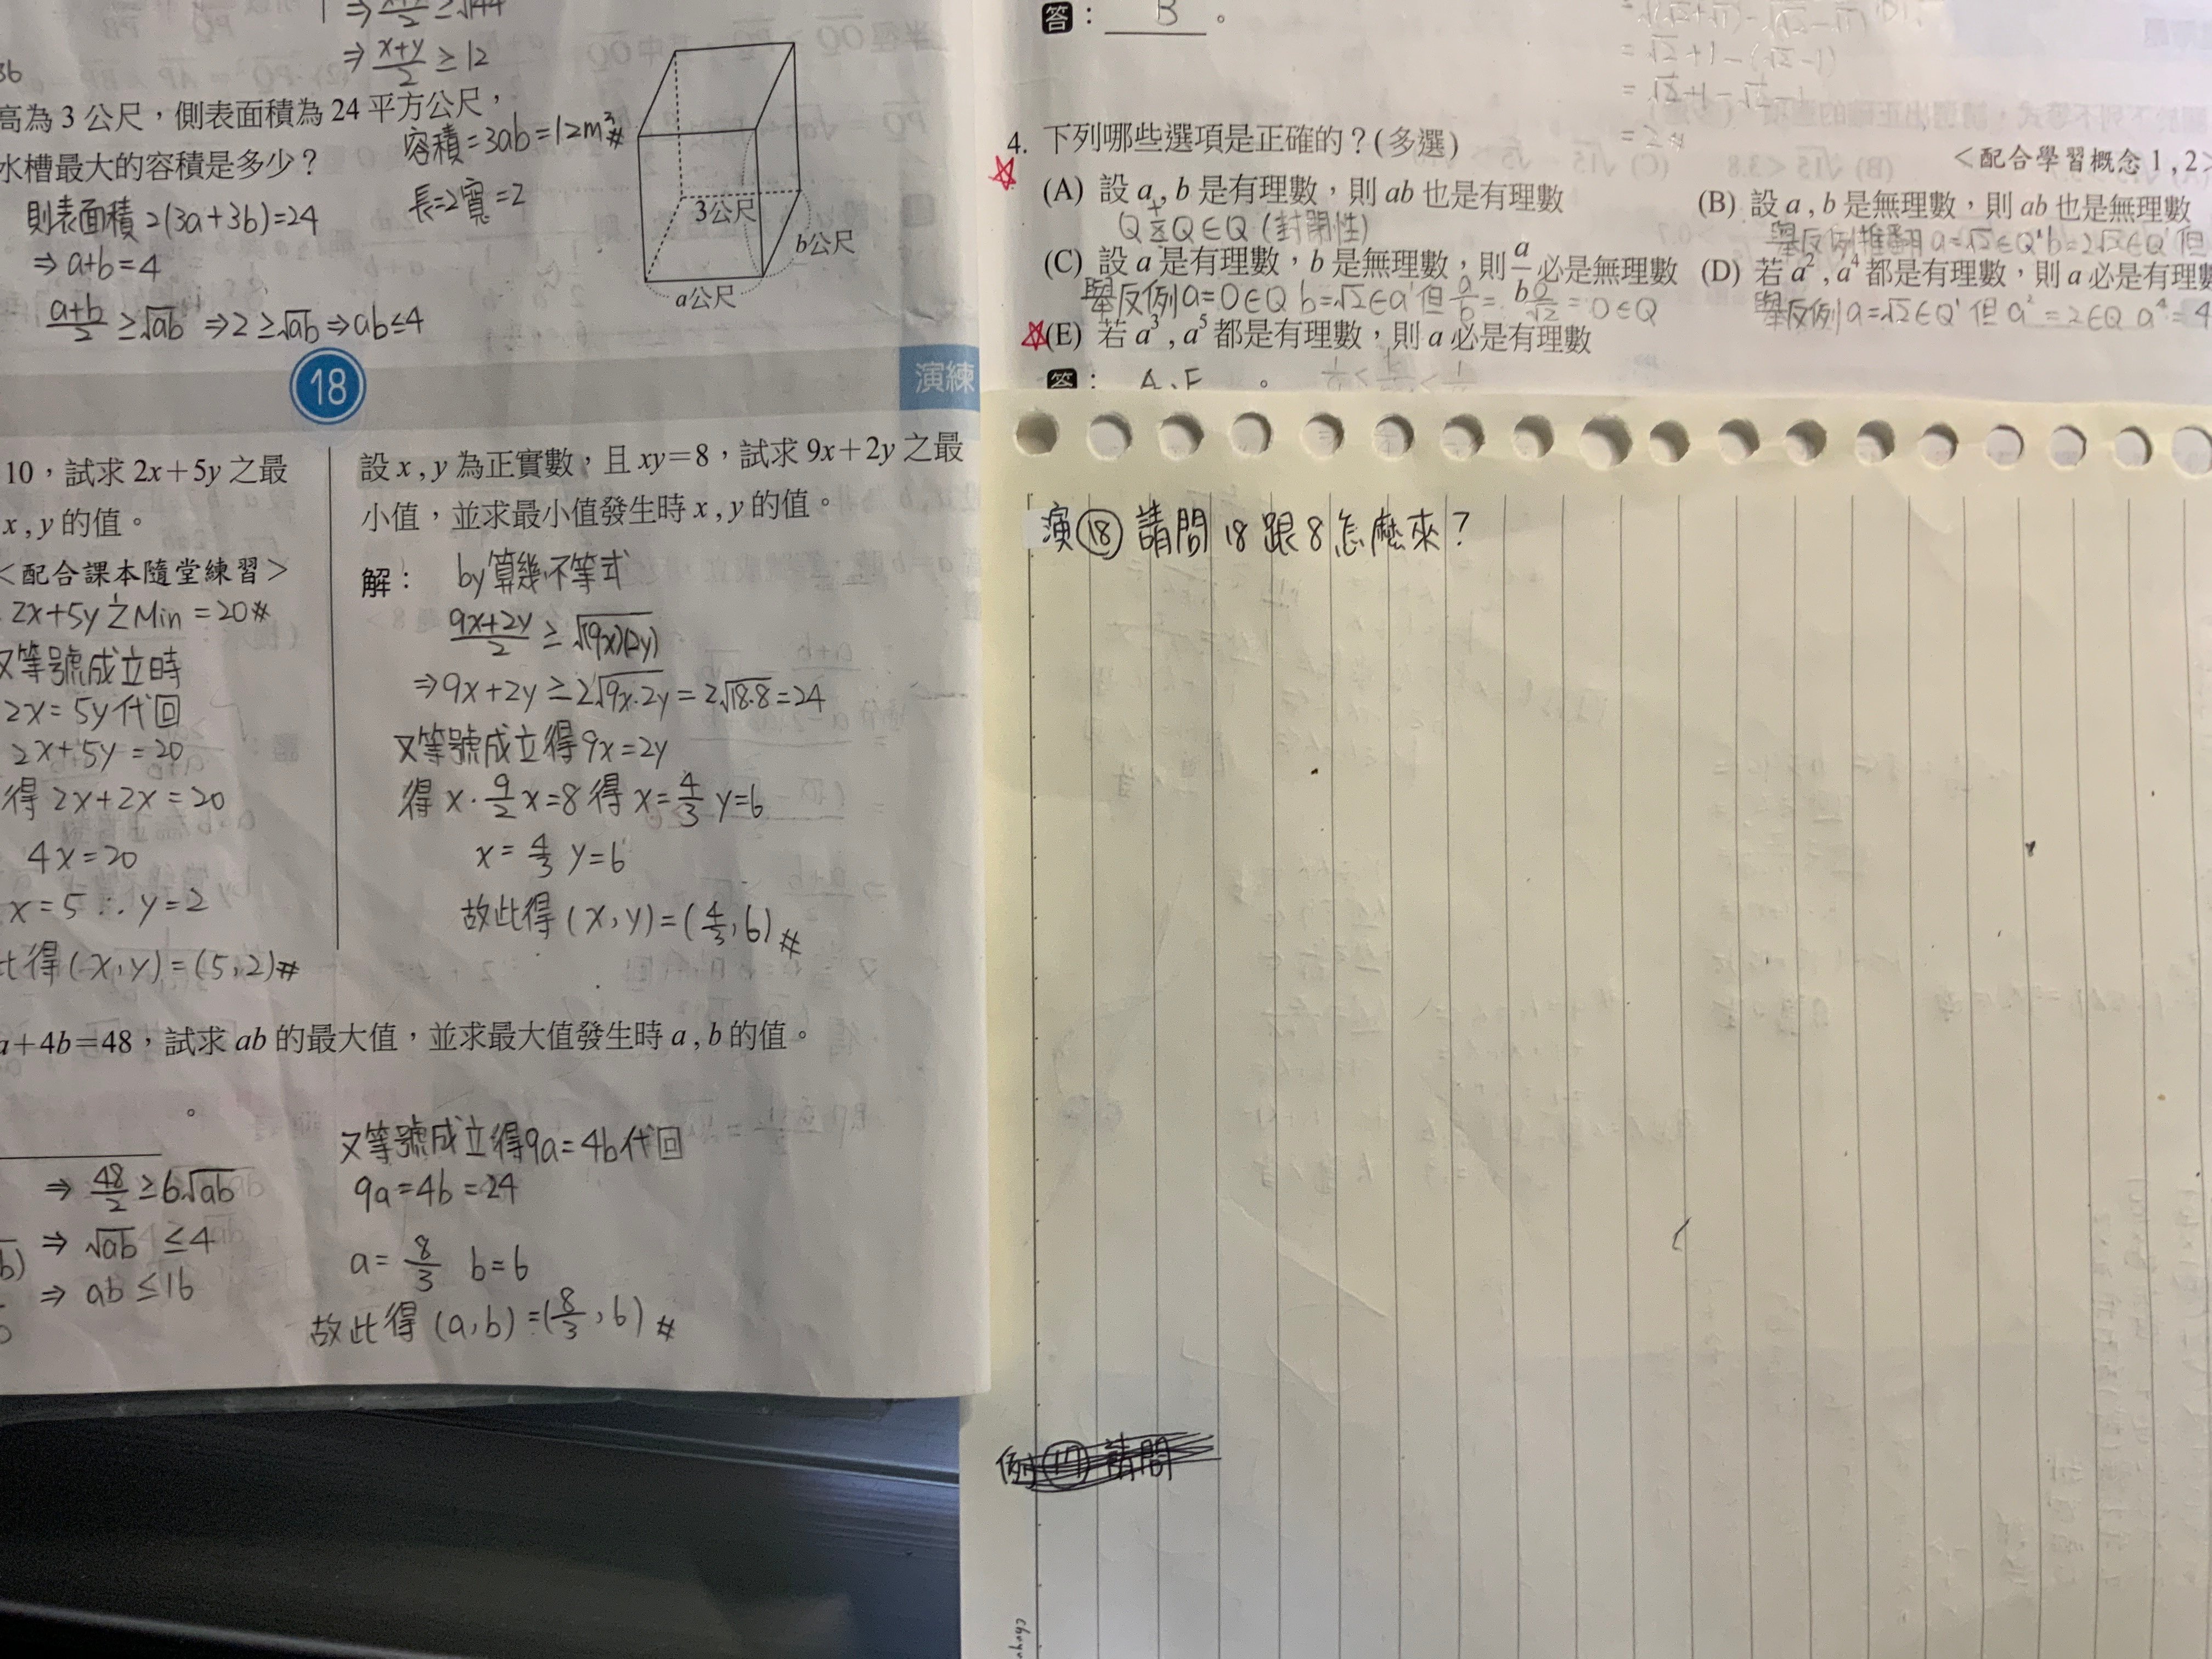 ⇒ x+y/2 ≥ √144
⇒ x+y/2 ≥ 12
36
高為 3 公尺，側表面積為 24 平方公尺，
水槽最大的容積是多少？
容積=3ab=12m³#
長=2寬=2
則表面積 2(3a+3b)=24
⇒ a+b=4
a+b/2 ≥ √ab ⇒ 2 ≥ √ab ⇒ ab≤4
3公尺
b公尺
a公尺
18
演練
10，試求 2x+5y 之最
x , y 的值。
＜配合課本隨堂練習＞
2x+5y之Min =20#
又等號成立時
2x=5y代回
2x+5y=20
得 2x+2x=20
4x=20
x=5 ∴ y=2
此得(x,y)=(5,2)#
設 x , y 為正實數，且 xy=8，試求 9x+2y 之最
小值，並求最小值發生時 x , y 的值。
解： by算幾不等式
9x+2y/2 ≥ √(9x)(2y)
⇒9x+2y ≥ 2√9x·2y = 2√18·8 =24
又等號成立得9x=2y
得 x·9/2x=8 得 x=4/3 y=6
x=4/3 y=6
故此得 (x,y)=(4/3,6)#
a+4b=48，試求 ab 的最大值，並求最大值發生時 a , b 的值。
⇒ 48/2 ≥6√ab
⇒ √ab ≤4
⇒ ab ≤16
b)
又等號成立得9a=4b代回
9a=4b=24
a=8/3 b=6
故此得 (a,b)=(8/3,6)#
答： B 。
4. 下列哪些選項是正確的？(多選)
＜配合學習概念 1 , 2＞
(A) 設 a , b 是有理數，則 ab 也是有理數
(B) 設 a , b 是無理數，則 ab 也是無理數
(封閉性)
舉反例推翻 a=√2∈Q' b=2√2∈Q' 但
(C) 設 a 是有理數，b 是無理數，則 a/b 必是無理數
(D) 若 a² , a⁴ 都是有理數，則 a 必是有理數
舉反例 a=0∈Q b=√2∈a' 但 a/b = 0/√2 =0∈Q
舉反例 a=√2∈Q' 但 a²=2∈Q a⁴=4
(E) 若 a³ , a⁵ 都是有理數，則 a 必是有理數
答： A、E 。
演⑱ 請問 18 跟 8 怎麼來？
例⑰ 請問